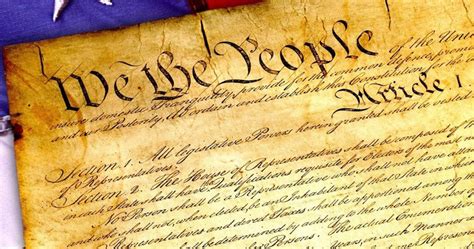 We the People
of the Un
insure domestic Tranquility, provide for the common defence, promo
and our Posterity, do ordain and establish this Constitution for the
Article 1
Section 1. All legislative Powers herein granted shall be vested
of Representatives.
Section 2. The House of Representatives shall be composed of
in each State shall have Qualifications requisite for Electors of the most
No Person shall be a Representative who shall not have
and who shall not, when elected, be an Inhabitant of that State in which
Representatives and direct Taxes shall be apportioned among
be determined by adding to the whole Number
The actual Enumeration
in such Manner